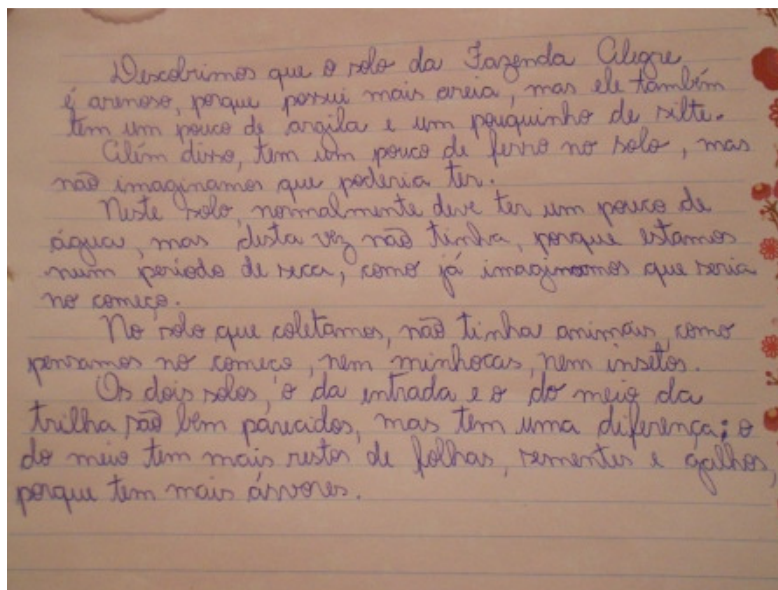 Descobrimos que o solo da Fazenda Alegre
é arenoso, porque possui mais areia, mas ele também
tem um pouco de argila e um pouquinho de silte.
Além disso, tem um pouco de ferro no solo, mas
não imaginamos que poderia ter.
Neste solo, normalmente deve ter um pouco de
água, mas desta vez não tinha, porque estamos
num período de seca, como já imaginamos que seria
no começo.
No solo que coletamos, não tinha animais, como
pensamos no começo, nem minhocas, nem insetos.
Os dois solos, o da entrada e o do meio da
trilha são bem parecidos, mas tem uma diferença: o
do meio tem mais restos de folhas, sementes e galhos,
porque tem mais árvores.